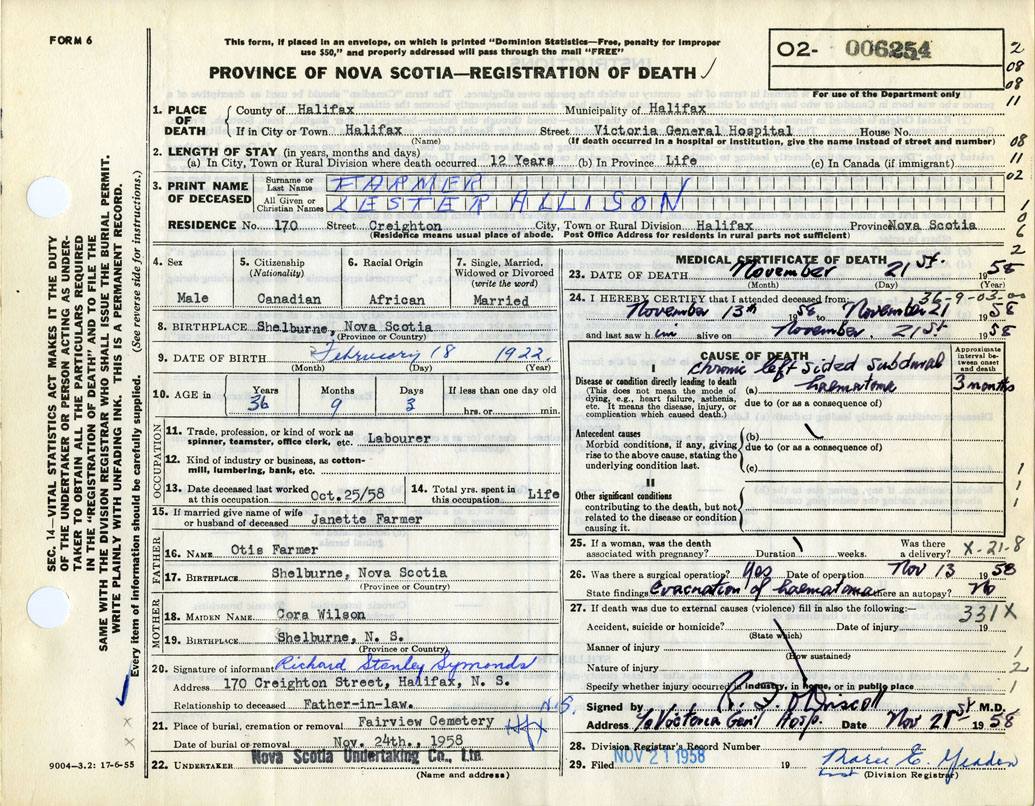 FORM 6
This form, if placed in an envelope, on which is printed "Dominion Statistics—Free, penalty for improper
use $50," and properly addressed will pass through the mail "FREE"
PROVINCE OF NOVA SCOTIA—REGISTRATION OF DEATH
O2- 006254
For use of the Department only
2
08
08
11
08
11
02
1
0
6
2
SEC. 14—VITAL STATISTICS ACT MAKES IT THE DUTY
OF THE UNDERTAKER OR PERSON ACTING AS UNDER-
TAKER TO OBTAIN ALL THE PARTICULARS REQUIRED
IN THE "REGISTRATION OF DEATH" AND TO FILE THE
SAME WITH THE DIVISION REGISTRAR WHO SHALL ISSUE THE BURIAL PERMIT.
WRITE PLAINLY WITH UNFADING INK. THIS IS A PERMANENT RECORD.
Every item of information should be carefully supplied. (See reverse side for instructions.)
1. PLACE OF DEATH
County of Halifax Municipality of Halifax
If in City or Town Halifax Street Victoria General Hospital House No.
(Name) (If death occurred in a hospital or institution, give the name instead of street and number)
2. LENGTH OF STAY (in years, months and days)
(a) In City, Town or Rural Division where death occurred 12 Years (b) In Province Life (c) In Canada (if immigrant)
3. PRINT NAME OF DECEASED
Surname or Last Name FARMER
All Given or Christian Names LESTER ALLISON
RESIDENCE No. 170 Street Creighton City, Town or Rural Division Halifax Province Nova Scotia
(Residence means usual place of abode. Post Office Address for residents in rural parts not sufficient)
4. Sex
Male
5. Citizenship
(Nationality)
Canadian
6. Racial Origin
African
7. Single, Married,
Widowed or Divorced
(write the word)
Married
8. BIRTHPLACE Shelburne, Nova Scotia
(Province or Country)
9. DATE OF BIRTH February 18 1922
(Month) (Day) (Year)
10. AGE in
Years Months Days If less than one day old
36 9 3 hrs. or min.
OCCUPATION
11. Trade, profession, or kind of work as
spinner, teamster, office clerk, etc. Labourer
12. Kind of industry or business, as cotton-
mill, lumbering, bank, etc.
13. Date deceased last worked
at this occupation Oct.25/58
14. Total yrs. spent in
this occupation Life
15. If married give name of wife
or husband of deceased Janette Farmer
FATHER
16. NAME Otis Farmer
17. BIRTHPLACE Shelburne, Nova Scotia
(Province or Country)
MOTHER
18. MAIDEN NAME Cora Wilson
19. BIRTHPLACE Shelburne, N. S.
(Province or Country)
20. Signature of informant Richard Stanley Symonds
Address 170 Creighton Street, Halifax, N. S.
Relationship to deceased Father-in-law.
N.S.
21. Place of burial, cremation or removal Fairview Cemetery
Date of burial or removal Nov. 24th., 1958
22. UNDERTAKER Nova Scotia Undertaking Co., Ltd.
(Name and address)
9004—3.2: 17-6-55
MEDICAL CERTIFICATE OF DEATH
23. DATE OF DEATH November 21st. 1958
(Month) (Day) (Year)
36-9-03-00
24. I HEREBY CERTIFY that I attended deceased from:
November 13th 1958 to November 21 1958
and last saw him alive on November 21st 1958
CAUSE OF DEATH
Approximate
interval be-
tween onset
and death
I
Disease or condition directly leading to death
(This does not mean the mode of
dying, e.g., heart failure, asthenia,
etc. It means the disease, injury, or
complication which caused death.)
chronic left sided subdural
(a) haematoma 3 months
due to (or as a consequence of)
Antecedent causes
Morbid conditions, if any, giving
rise to the above cause, stating the
underlying condition last.
(b)
due to (or as a consequence of)
(c)
II
Other significant conditions
contributing to the death, but not
related to the disease or condition
causing it.
1
1
1
25. If a woman, was the death
associated with pregnancy? Duration weeks. Was there
a delivery?
X-21-8
26. Was there a surgical operation? Yes Date of operation Nov 13 1958
State findings Evacuation of haematoma Was there an autopsy? No
27. If death was due to external causes (violence) fill in also the following:—
331X
Accident, suicide or homicide? Date of injury 19
(State which)
Manner of injury
(How sustained)
1
Nature of injury
2
Specify whether injury occurred in industry, in home, or in public place
1
Signed by R. J. O'Driscoll M.D.
Address Victoria Gen'l Hosp. Date Nov 21st 1958
28. Division Registrar's Record Number
29. Filed NOV 21 1958 19
(Division Registrar)